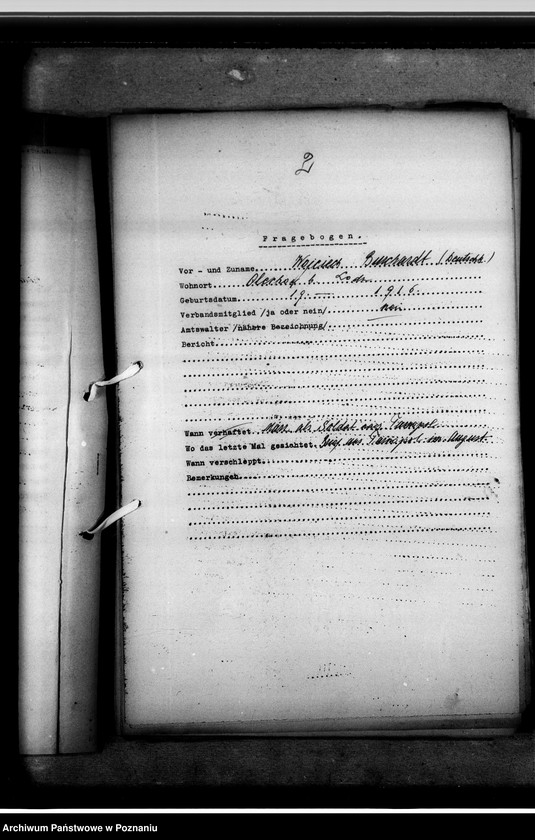 2
Fragebogen.
Vor - und Zuname. Burchardt (Deutsch)
Wohnort. b. Lodz
Geburtsdatum. 19. — 1915.
Verbandsmitglied /ja oder nein/. nein
Amtswalter /nähere Bezeichnung/
Bericht.
Wann verhaftet. als Soldat
Wo das letzte Mal gesichtet. im August
Wann verschleppt.
Bemerkungen.
Archiwum Państwowe w Poznaniu